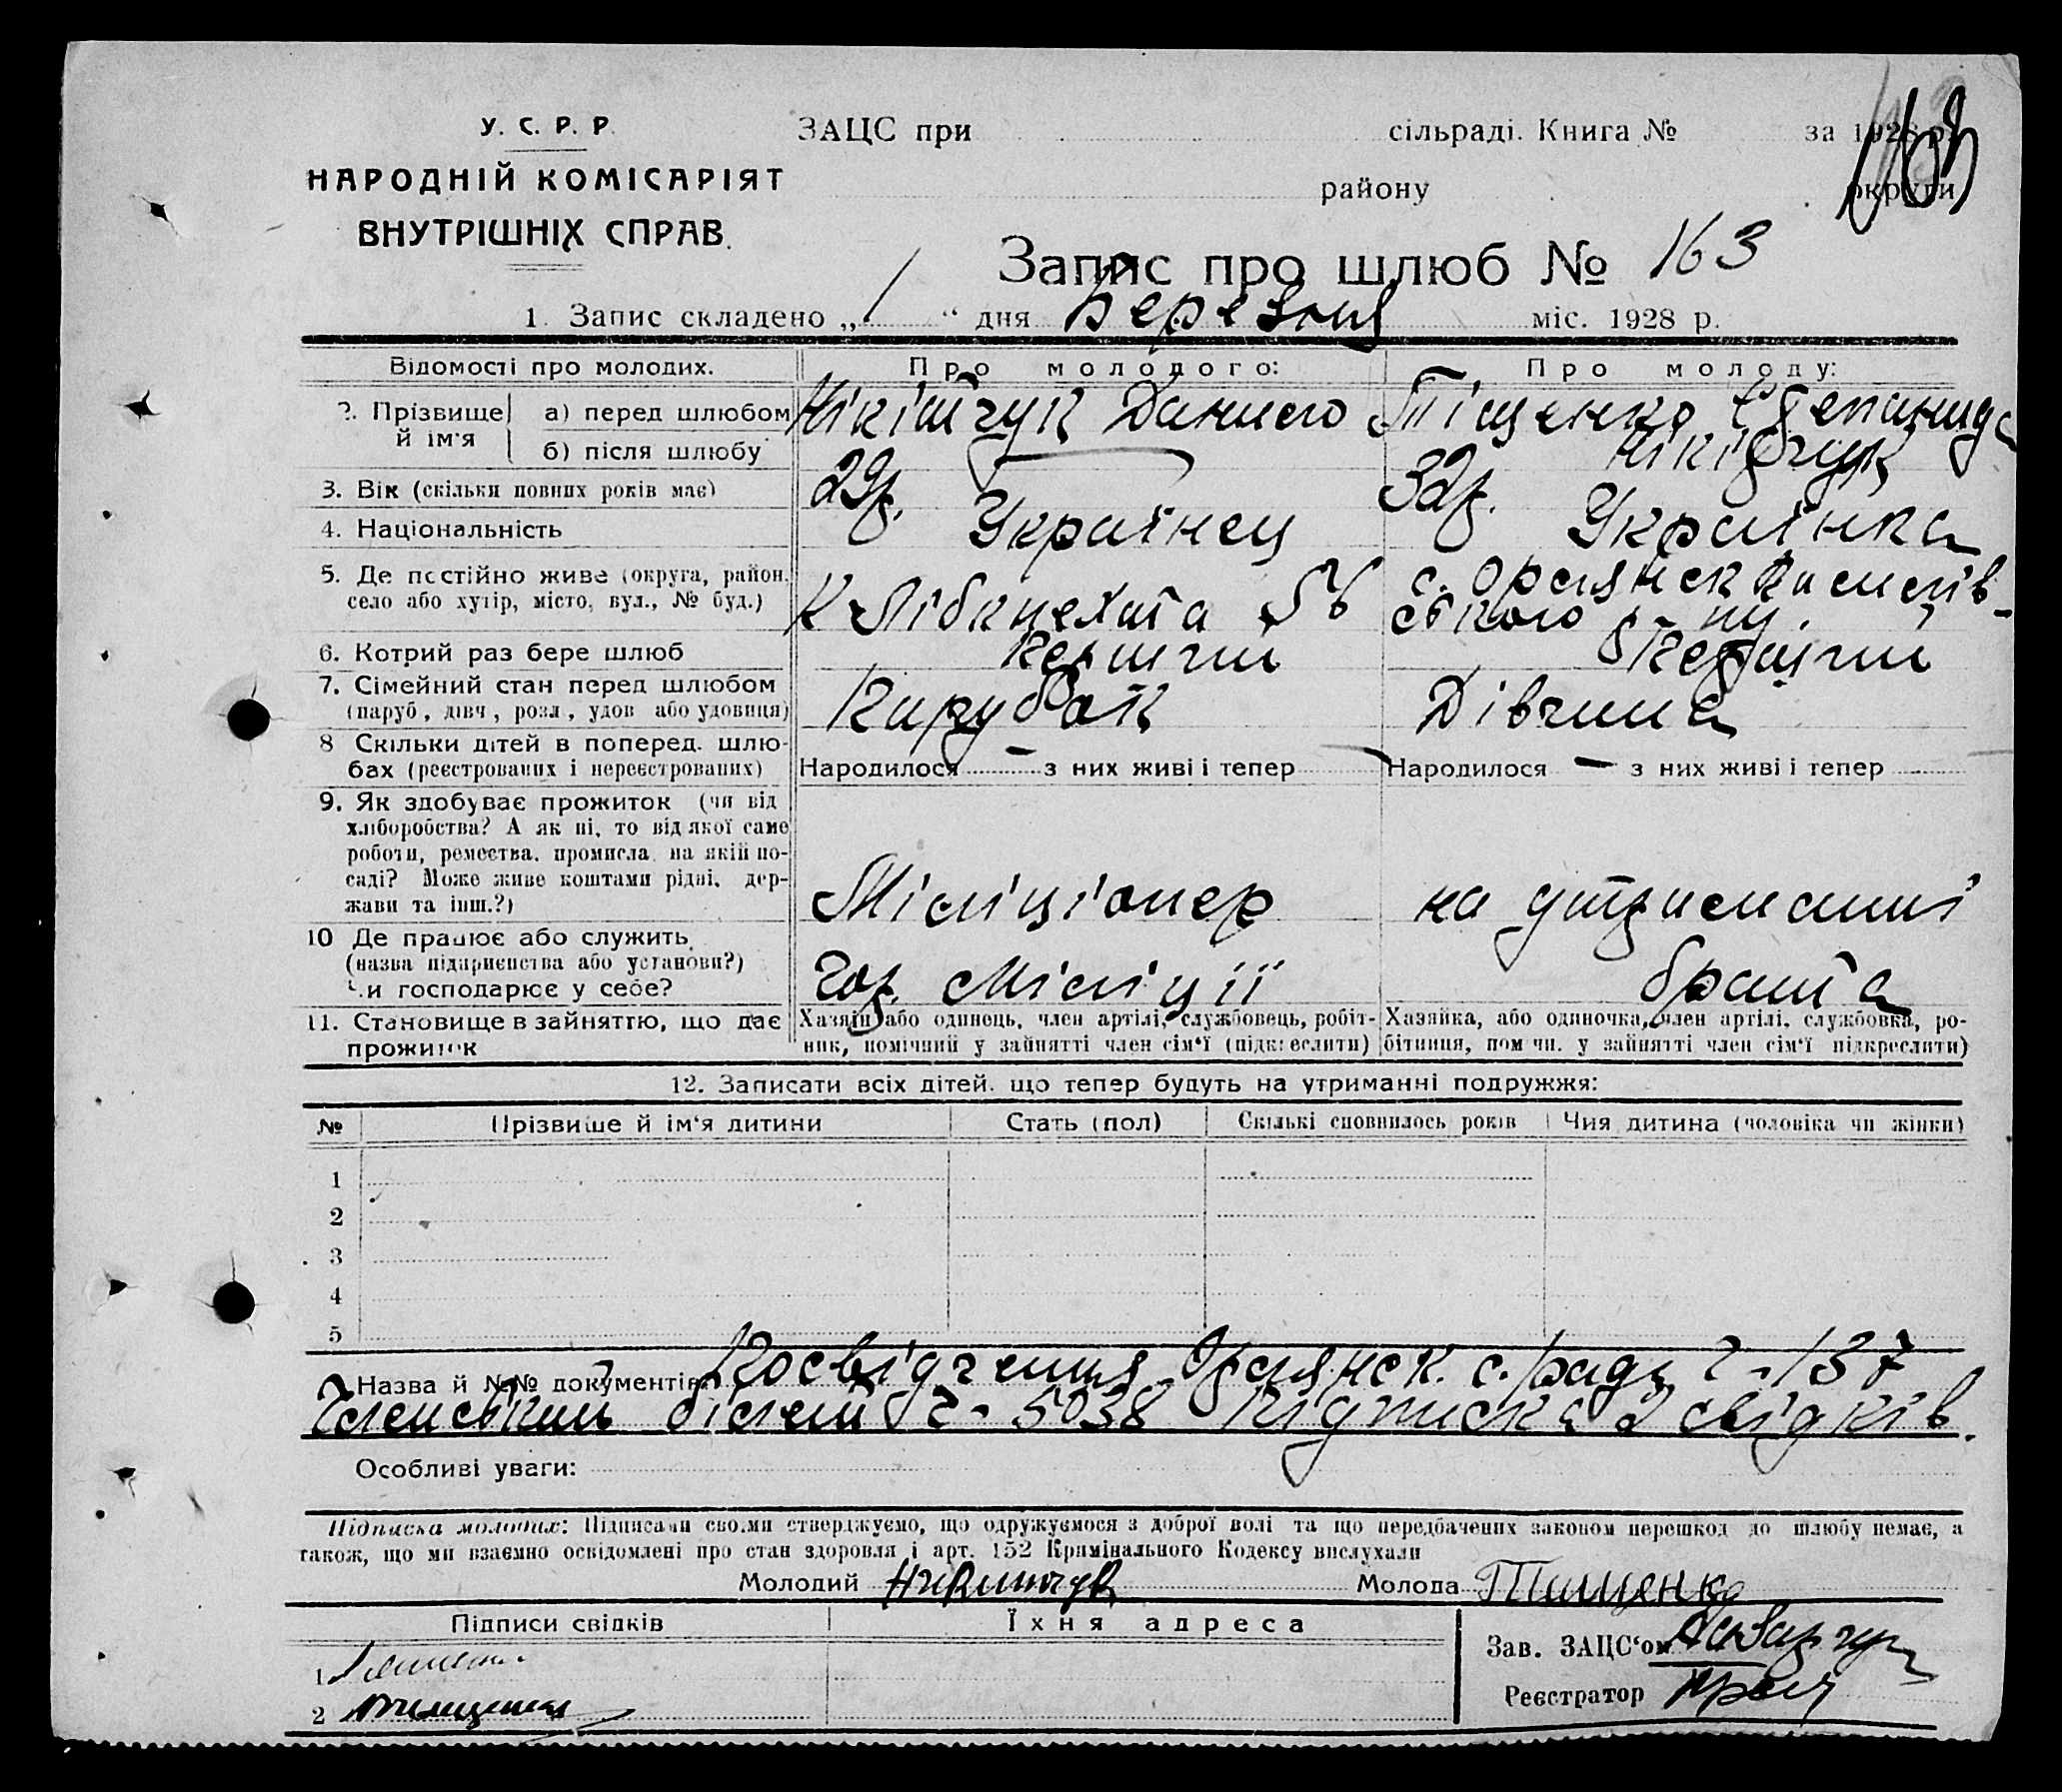 163
У. С. Р. Р.
НАРОДНІЙ КОМІСАРІЯТ
ВНУТРІШНІХ СПРАВ.
ЗАЦС при сільраді. Книга № за 1928 р.
району округи
Запис про шлюб № 163
1. Запис складено „ 1 “ дня Березня міс. 1928 р.
Відомости про молодих. Про молодого: Про молоду:
2. Прізвище й ім'я
а) перед шлюбом Нікітчук Данило Тіщенко Степанида
б) після шлюбу Нікітчук
3. Вік (скільки повних років має) 29р. 32р.
4. Національність Українец Українка
5. Де постійно живе (округа, район,
село або хутір, місто, вул., № буд.)
К Лібкнехта 56
с.
ського
6. Котрий раз бере шлюб Перший Перший
7. Сімейний стан перед шлюбом
(паруб., дівч., розл., удов. або удовиця)
Парубок Дівчина
8 Скільки дітей в поперед. шлю-
бах (реєстрованих і нереєстрованих)
Народилося — з них живі і тепер Народилося — з них живі і тепер
9. Як здобуває прожиток (чи від
хліборобства? А як ні, то від якої саме
роботи, ремества, промисла, на якій по-
саді? Може живе коштами рідні, дер-
жави та інш.?)
Міліціонер на утриманні
10 Де працює або служить
(назва підприємства або установи?)
Чи господарює у себе?
Гор. Міліції брата
11. Становище в зайняттю, що дає
прожиток
Хазяїн або одинець, член артілі, службовець, робіт-
ник, помічний у зайнятті член сім'ї (підкреслити)
Хазяйка, або одиночка, член артілі, службовка, ро-
бітниця, помічн. у зайнятті член сім'ї підкреслити)
12. Записати всіх дітей, що тепер будуть на утриманні подружжя:
№ Прізвище й ім'я дитини Стать (пол) Скількі сповнилось років Чия дитина (чоловіка чи жінки)
1
2
3
4
5
Назва й №№ документів: Посвідчення с. ради ч - 137
Членський білет ч - 5038 Підписка 2 свідків.
Особливі уваги:
Підписка молодих: Підписами своїми стверджуємо, що одружуємося з доброї волі та що передбачених законом перешкод до шлюбу немає, а
також, що ми взаємно освідомлені про стан здоровля і арт. 152 Кримінального Кодексу вислухали
Молодий Никитчук Молода Тищенко
Підписи свідків Їхня адреса
Зав. ЗАЦС'ом
1
Реєстратор
2